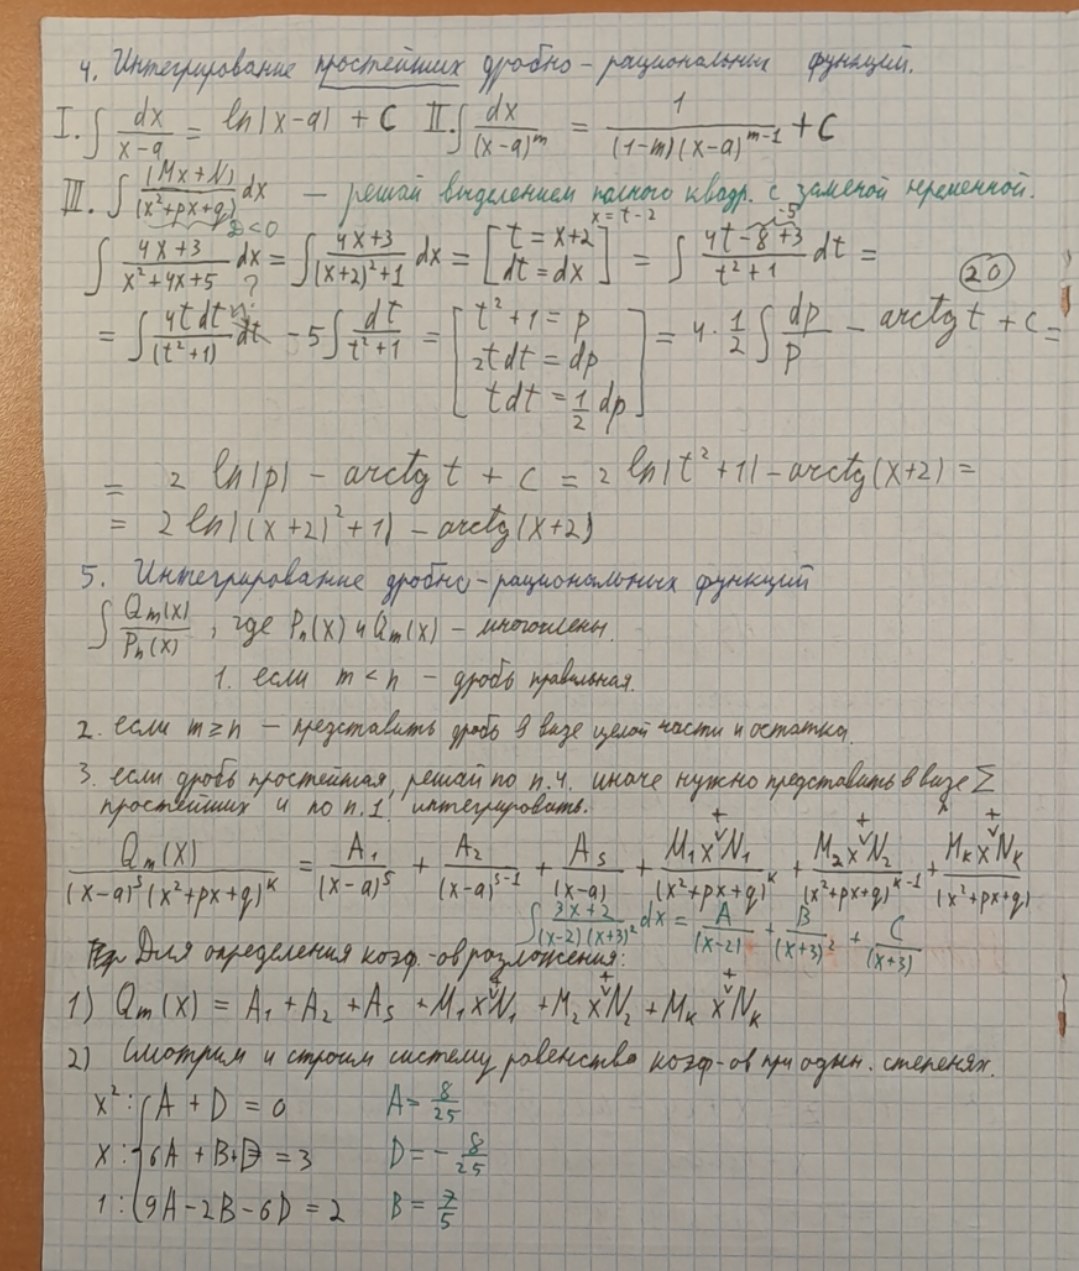 4. Интегрирование простейших дробно-рациональных функций.
I. ∫ dx/(x-a) = ln|x-a| + C II. ∫ dx/(x-a)^m = 1/((1-m)(x-a)^(m-1)) + C
III. ∫ (Mx+N)/(x²+px+q) dx — решай выделением полного квадр. с заменой переменной.
D<0 x = t-2 -5
∫ (4x+3)/(x²+4x+5) dx = ∫ (4x+3)/((x+2)²+1) dx = [t = x+2 dt = dx] = ∫ (4t-8+3)/(t²+1) dt =
? 20
= ∫ 4t dt/(t²+1) - 5∫ dt/(t²+1) = [t²+1 = p 2tdt = dp tdt = 1/2 dp] = 4·1/2 ∫ dp/p - arctg t + C =
= 2 ln|p| - arctg t + C = 2 ln|t²+1| - arctg(x+2) =
= 2 ln|(x+2)²+1| - arctg(x+2)
5. Интегрирование дробно-рациональных функций
∫ Qm(x)/Pn(x), где Pn(x) и Qm(x) - многочлены.
1. если m < n - дробь правильная.
2. если m ≥ n — представить дробь в виде целой части и остатка.
3. если дробь простейшая, решай по п.4. иначе нужно представить в виде Σ
простейших и по п.1 интегрировать.
Qm(x)/((x-a)^s(x²+px+q)^k) = A₁/(x-a)^s + A₂/(x-a)^(s-1) + As/(x-a) + (M₁x+N₁)/(x²+px+q)^k + (M₂x+N₂)/(x²+px+q)^(k-1) + (Mkx+Nk)/(x²+px+q)
∫ (3x+2)/((x-2)(x+3)²) dx = A/(x-2) + B/(x+3)² + C/(x+3)
Для определения коэф.-ов разложения:
1) Qm(x) = A₁ + A₂ + As + M₁x+N₁ + M₂x+N₂ + Mkx+Nk
2) Смотрим и строим систему равенства коэф-ов при один. степенях.
x²: A + D = 0 A = 8/25
x: 6A + B + D = 3 D = -8/25
1: 9A - 2B - 6D = 2 B = 7/5